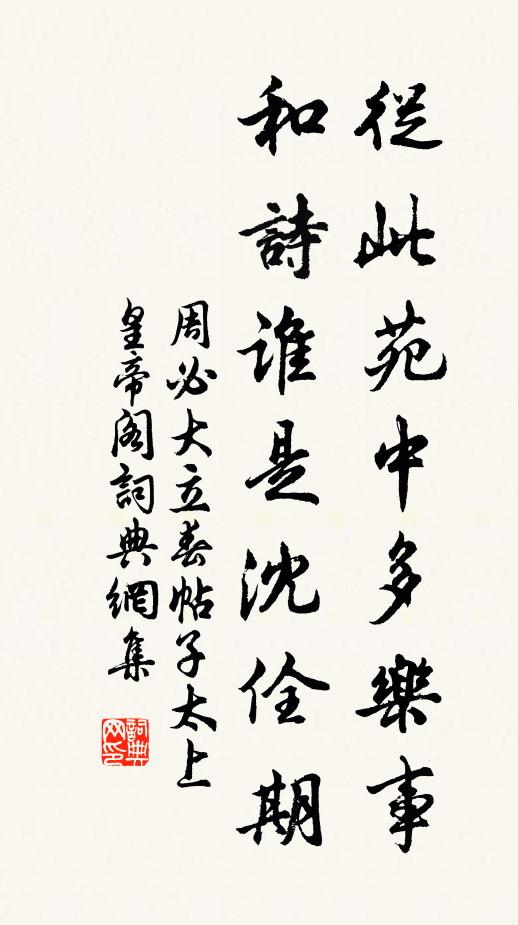 從此苑中多樂事
和詩誰是沈佺期
周必大立春帖子太上
皇帝閣詞典網集
詞典網印